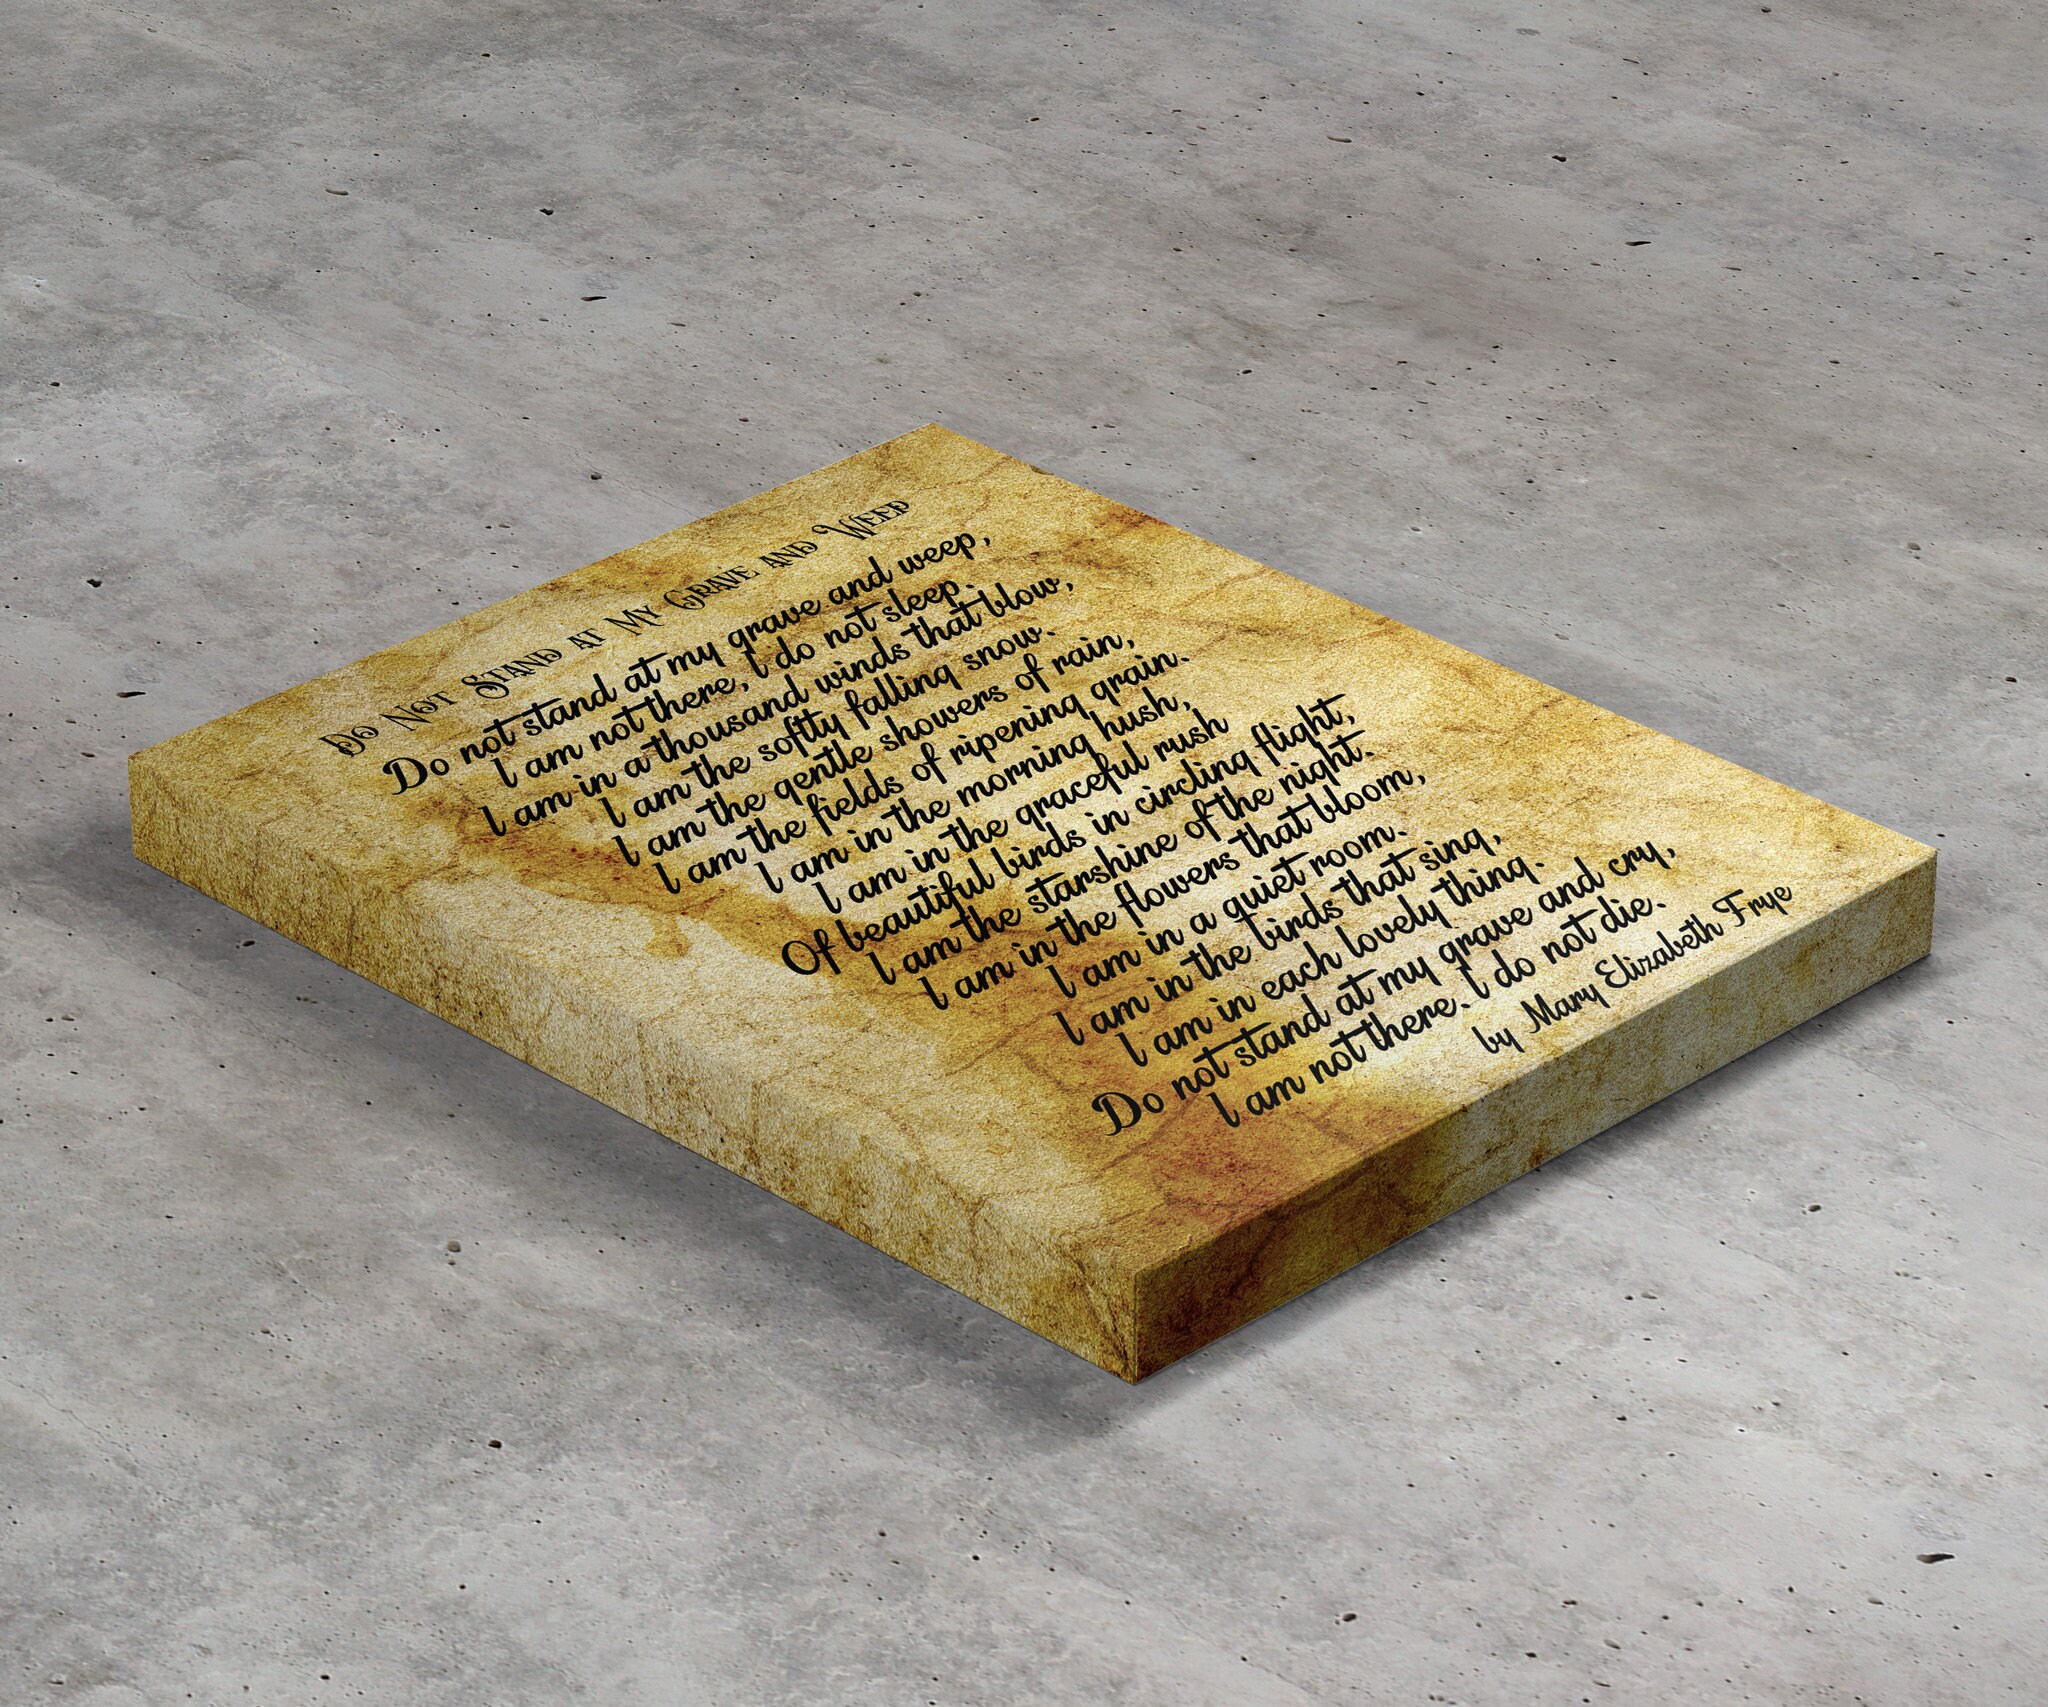 Do Not Stand at My Grave and Weep
Do not stand at my grave and weep,
I am not there, I do not sleep.
I am in a thousand winds that blow,
I am the softly falling snow.
I am the gentle showers of rain,
I am the fields of ripening grain.
I am in the morning hush,
I am in the graceful rush
Of beautiful birds in circling flight,
I am the starshine of the night.
I am in the flowers that bloom,
I am in a quiet room.
I am in the birds that sing,
I am in each lovely thing.
Do not stand at my grave and cry,
I am not there. I do not die.
by Mary Elizabeth Frye